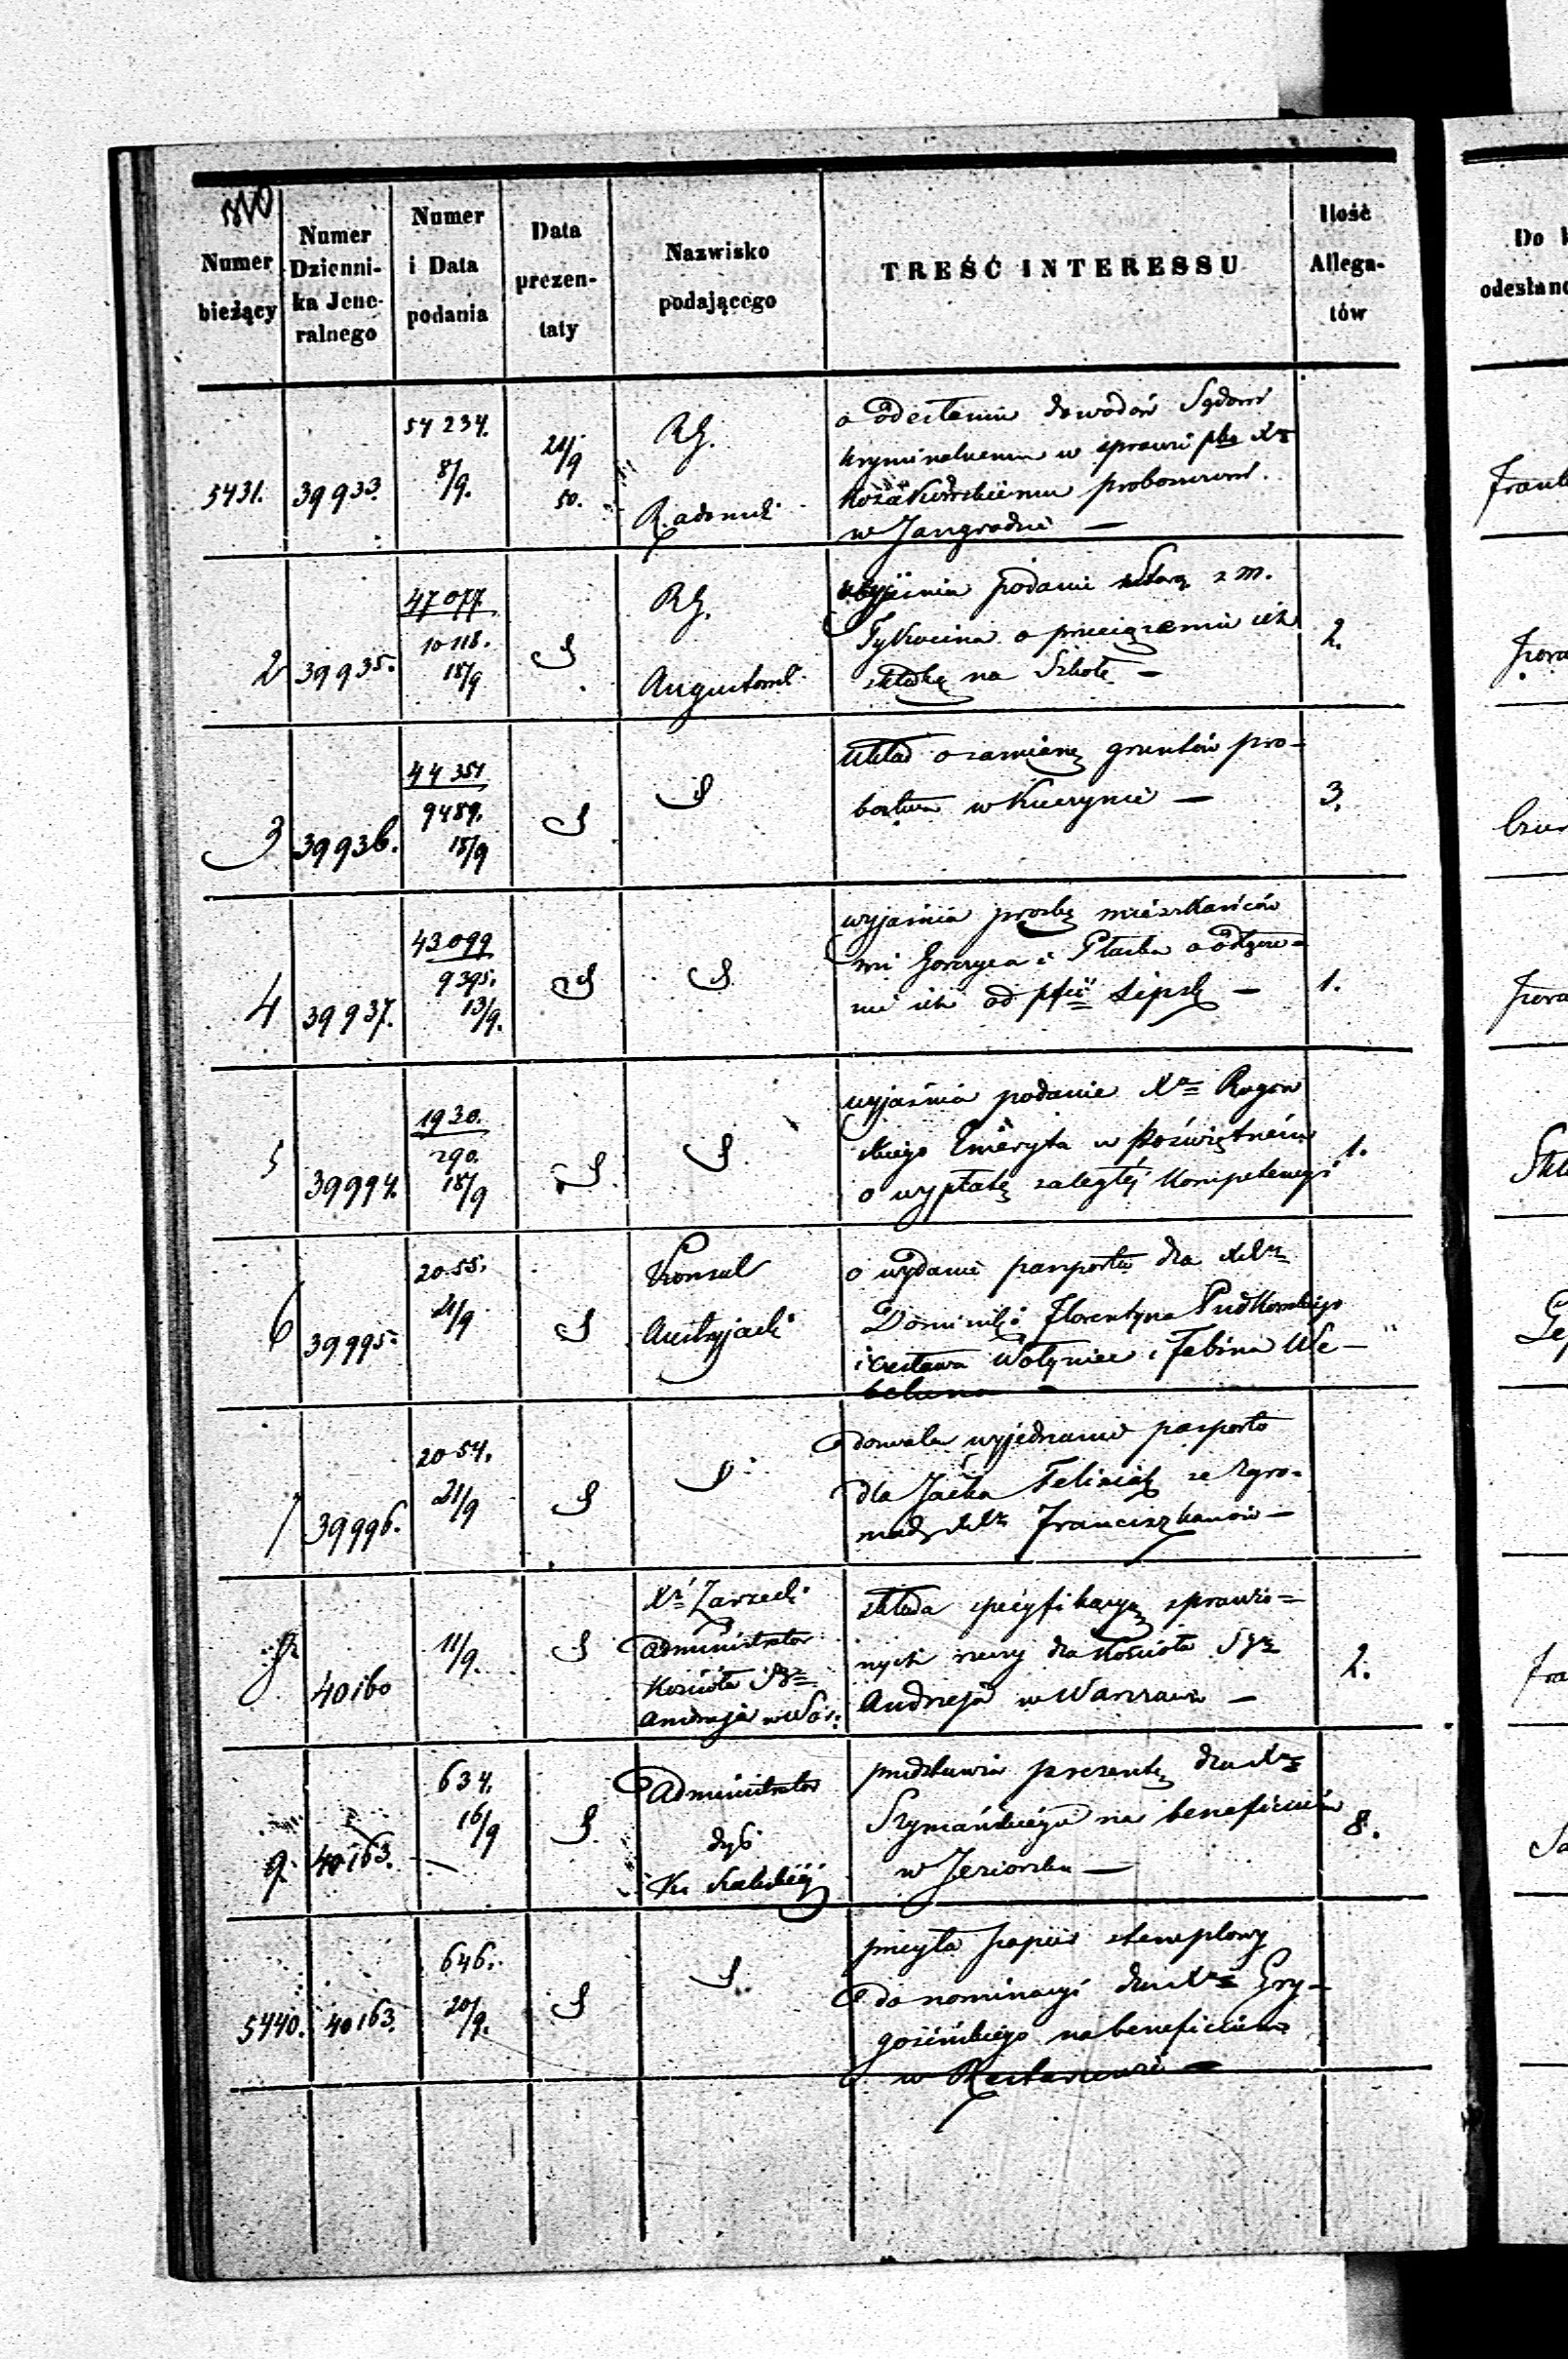 Numer
bieżący
Numer
Dzienni-
ka Jene-
ralnego
Numer
i Data
podania
Data
prezen-
taty
Nazwisko
podającego
TREŚĆ INTERESSU
Ilość
Allega-
tów
Do
odesłano
5431.
39933.
54 234.
8/9.
21/9
50.
RG.
Radomsk
o odesłaniu dowodów Sądowi
kryminalnemu w sprawie pko Xu
w Jangrodzie —
2
39935.
47077
10118.
18/9
RG.
Augustowsk
wyjaśnia podanie z m.
Tykocina o przeciążeniu ich
składką na Szkołę —
2.
3
39936.
44351
9489.
18/9
układ o zamianę gruntów pro-
bostwa w Kuczynie —
3.
4
39937.
43099
9395.
13/9.
wyjaśnia prośbę mieszkańców
wsi Gorczyca i Płaska o odłącze=
nie ich od pfii Lipsk —
1.
5
39994.
1930.
290.
18/9
wyjaśnia podanie Xa Rogow
skiego Emeryta w Poświętnem
o wypłatę zaległej kompetencyi
1.
6
39995.
2055.
21/9
Konsul
Austryjacki
o wydanie pasportu dla XXy
Dominika Florentyna Pudłowskiego
i Czesława Wołyniec i Fabina We—
beluna —
7
39996.
2054.
21/9
dozwala wyjednanie pasportu
dla Jacka Feliniak ze zgro-
madz XXy Franciszkanów —
8
40160
11/9.
Xs Zarzecki
Administrator
Kościoła Sgo
Andrzeja w War:
składa specyfikacyą sprawio=
nych rzeczy dla kościoła Sgo
Andrzeja w Warszawie —
2.
9.
40163.
634.
16/9
Administrator
dys
Ka Kaliskiej
przedstawia prezentę dla Xa
Szymańskiego na beneficium
w Jeziorsku —
8.
5440.
40163.
646.
20/9.
przesyła papier stemplowy
do nominacyi dla Xa Gry-
gosińskiego na beneficium
w